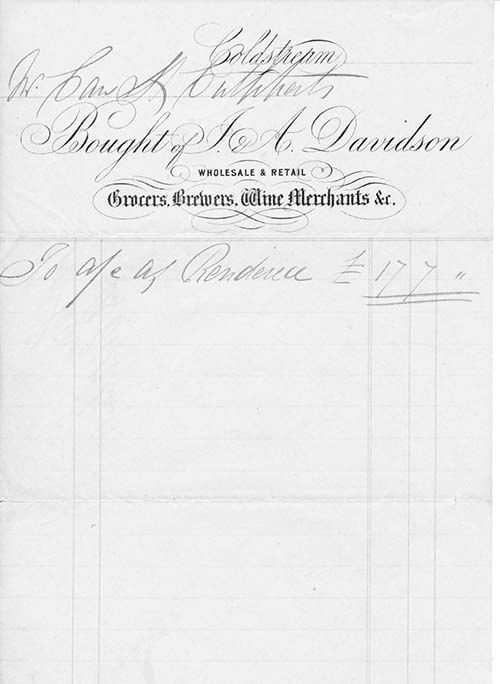 Coldstream
Mr. Carr St Cuthberts
Bought of J. & A. Davidson
WHOLESALE & RETAIL
Grocers, Brewers, Wine Merchants &c.
To a/c as Rendered £ 17 7 "